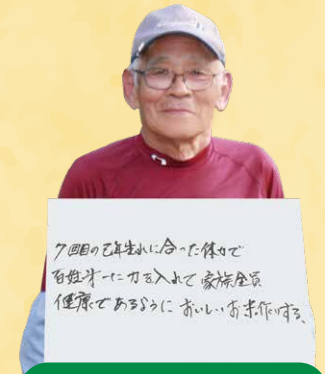 7回目の己年生れに合った体力で
百姓に力を入れて家族全員
健康であるようにおいしいお米作りする。